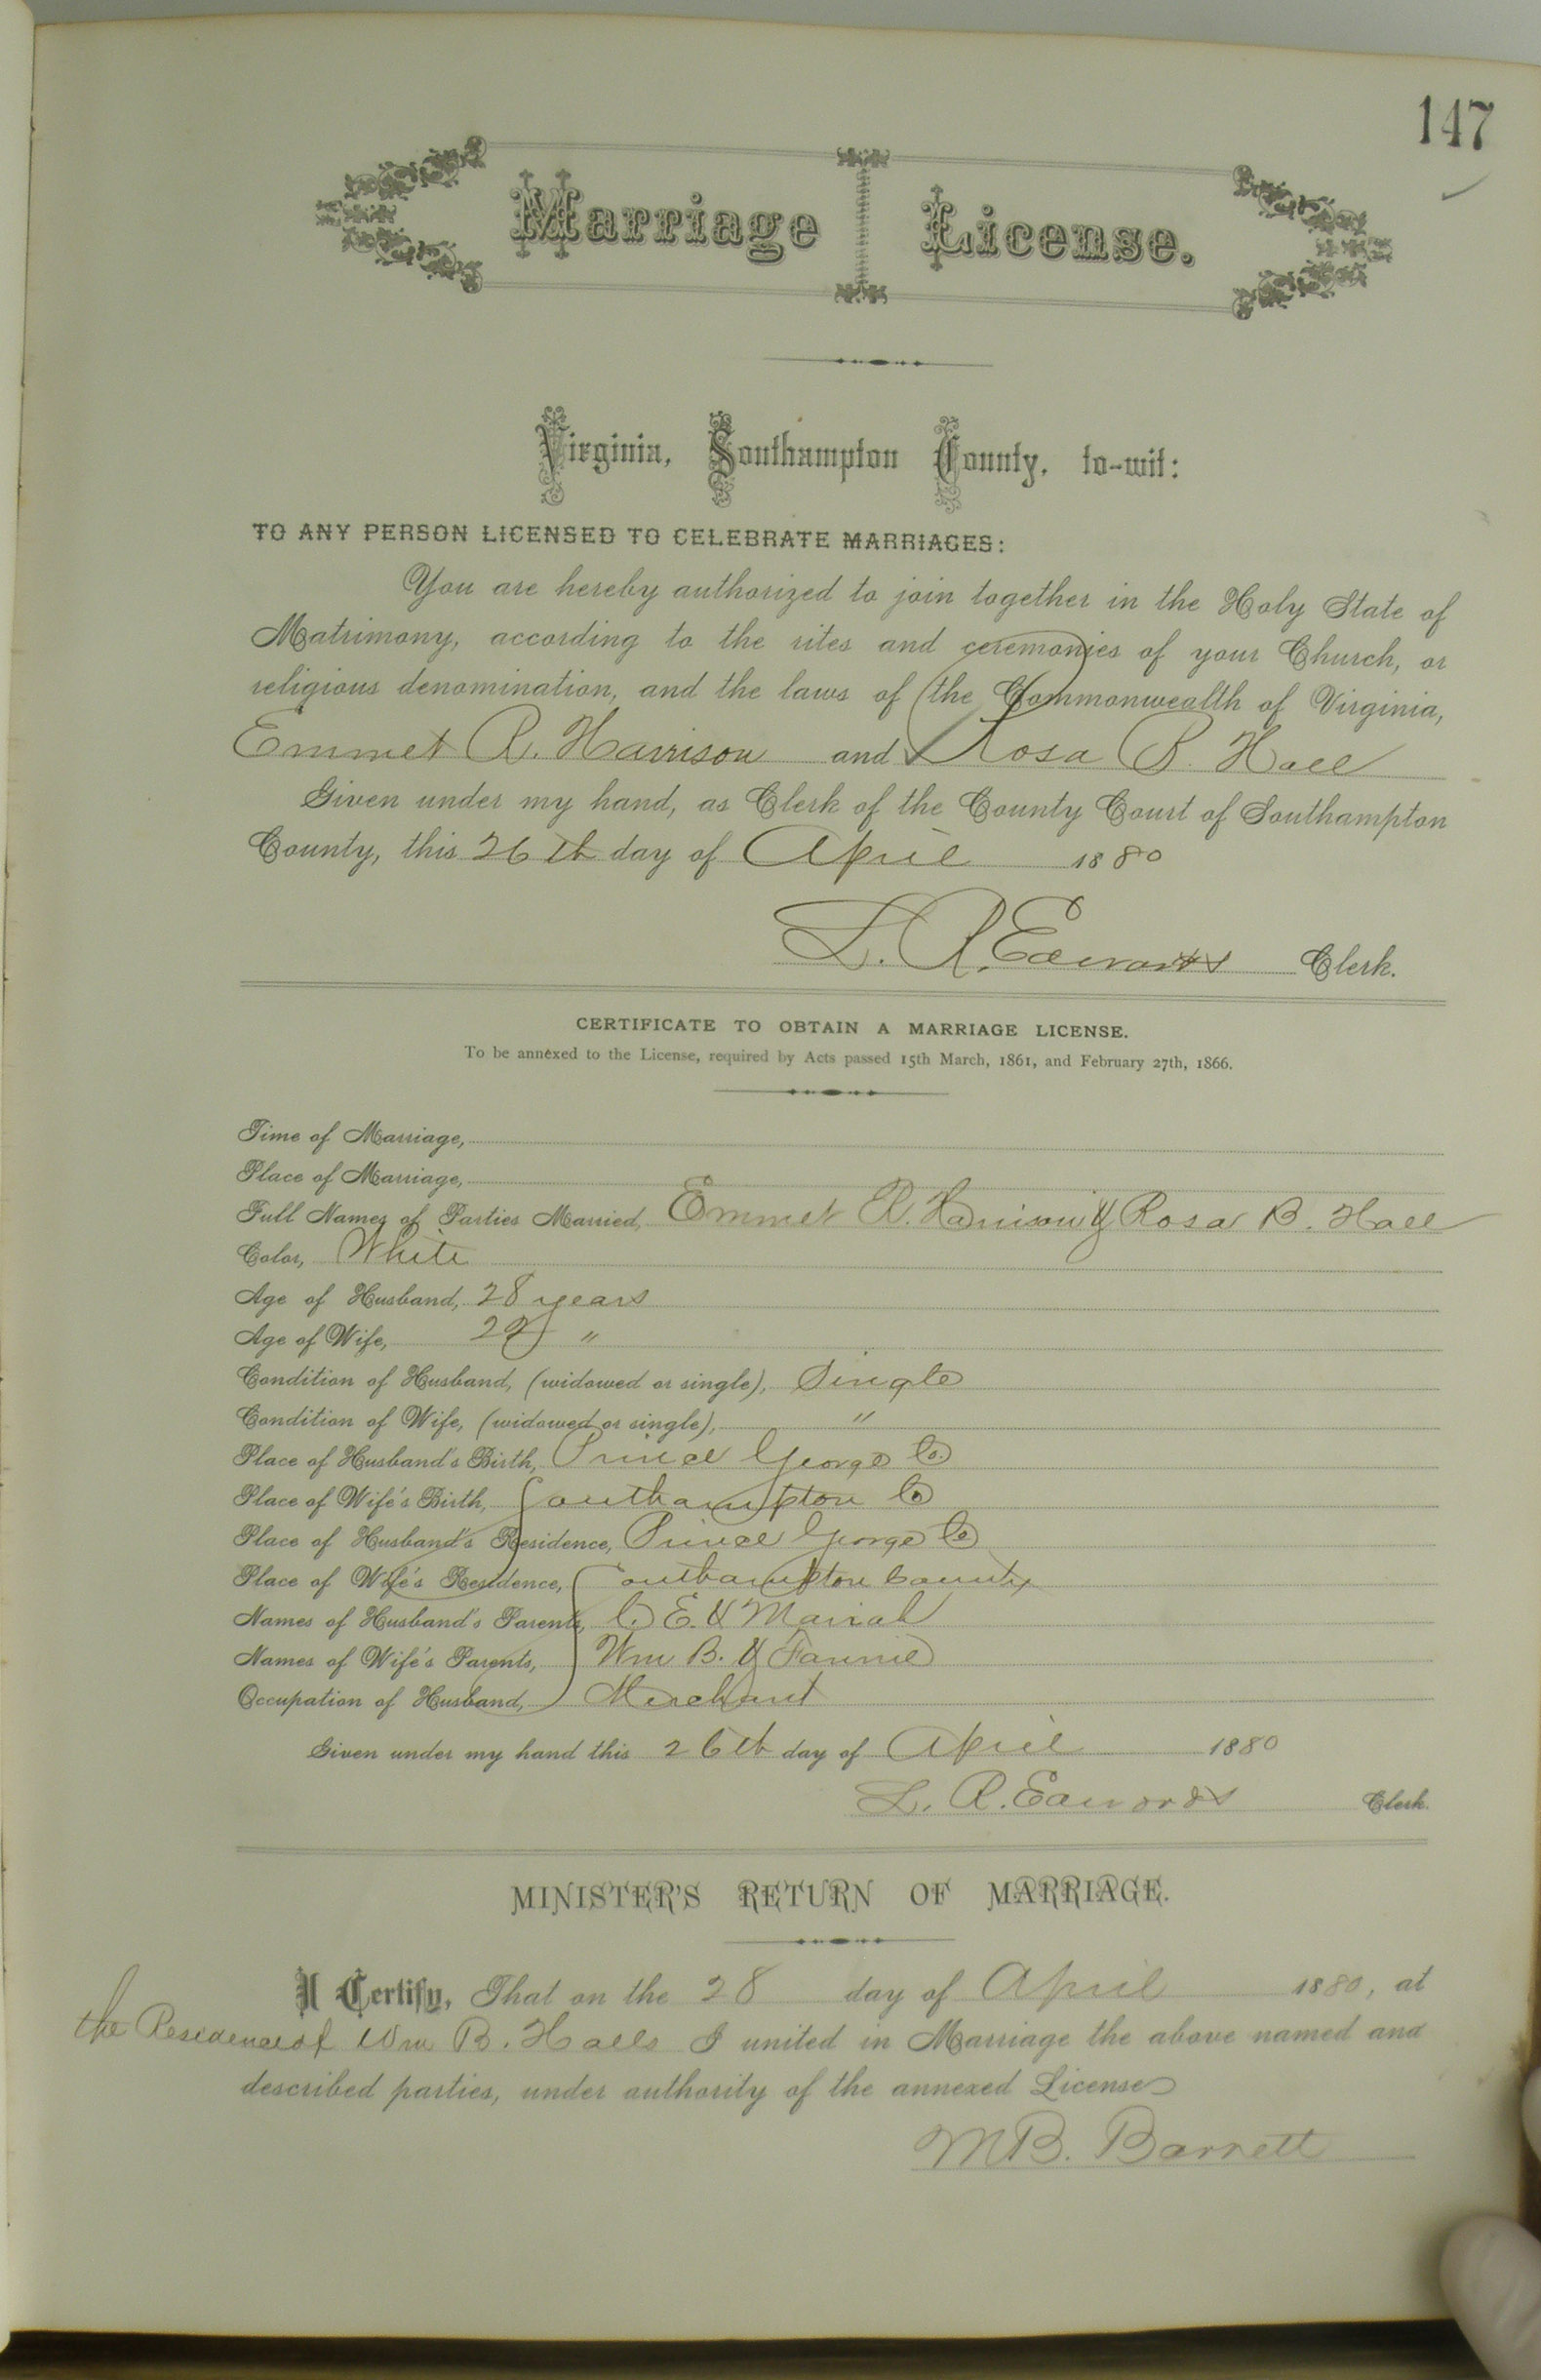 147
Marriage License.
Virginia, Southampton County, to-wit:
TO ANY PERSON LICENSED TO CELEBRATE MARRIAGES:
You are hereby authorized to join together in the Holy State of
Matrimony, according to the rites and ceremonies of your Church, or
religious denomination, and the laws of the Commonwealth of Virginia,
Emmet R. Harrison and Rosa B. Hall
Given under my hand, as Clerk of the County Court of Southampton
County, this 26th day of April 1880
L. R. Edwards Clerk.
CERTIFICATE TO OBTAIN A MARRIAGE LICENSE.
To be annexed to the License, required by Acts passed 15th March, 1861, and February 27th, 1866.
Time of Marriage,
Place of Marriage,
Full Names of Parties Married, Emmet R. Harrison & Rosa B. Hall
Color, White
Age of Husband, 28 years
Age of Wife, "
Condition of Husband, (widowed or single), Single
Condition of Wife, (widowed or single), "
Place of Husband's Birth, Prince George Co
Place of Wife's Birth, Southampton Co
Place of Husband's Residence, Prince George Co
Place of Wife's Residence, Southampton County
Names of Husband's Parents, C. E. & Mariah
Names of Wife's Parents, Wm B. & Fannie
Occupation of Husband, Merchant
Given under my hand this 26th day of April 1880
L. R. Edwards Clerk.
MINISTER'S RETURN OF MARRIAGE.
I Certify, That on the 28 day of April 1880, at
the Residence of Wm B. Halls I united in Marriage the above named and
described parties, under authority of the annexed License
M B. Barrett